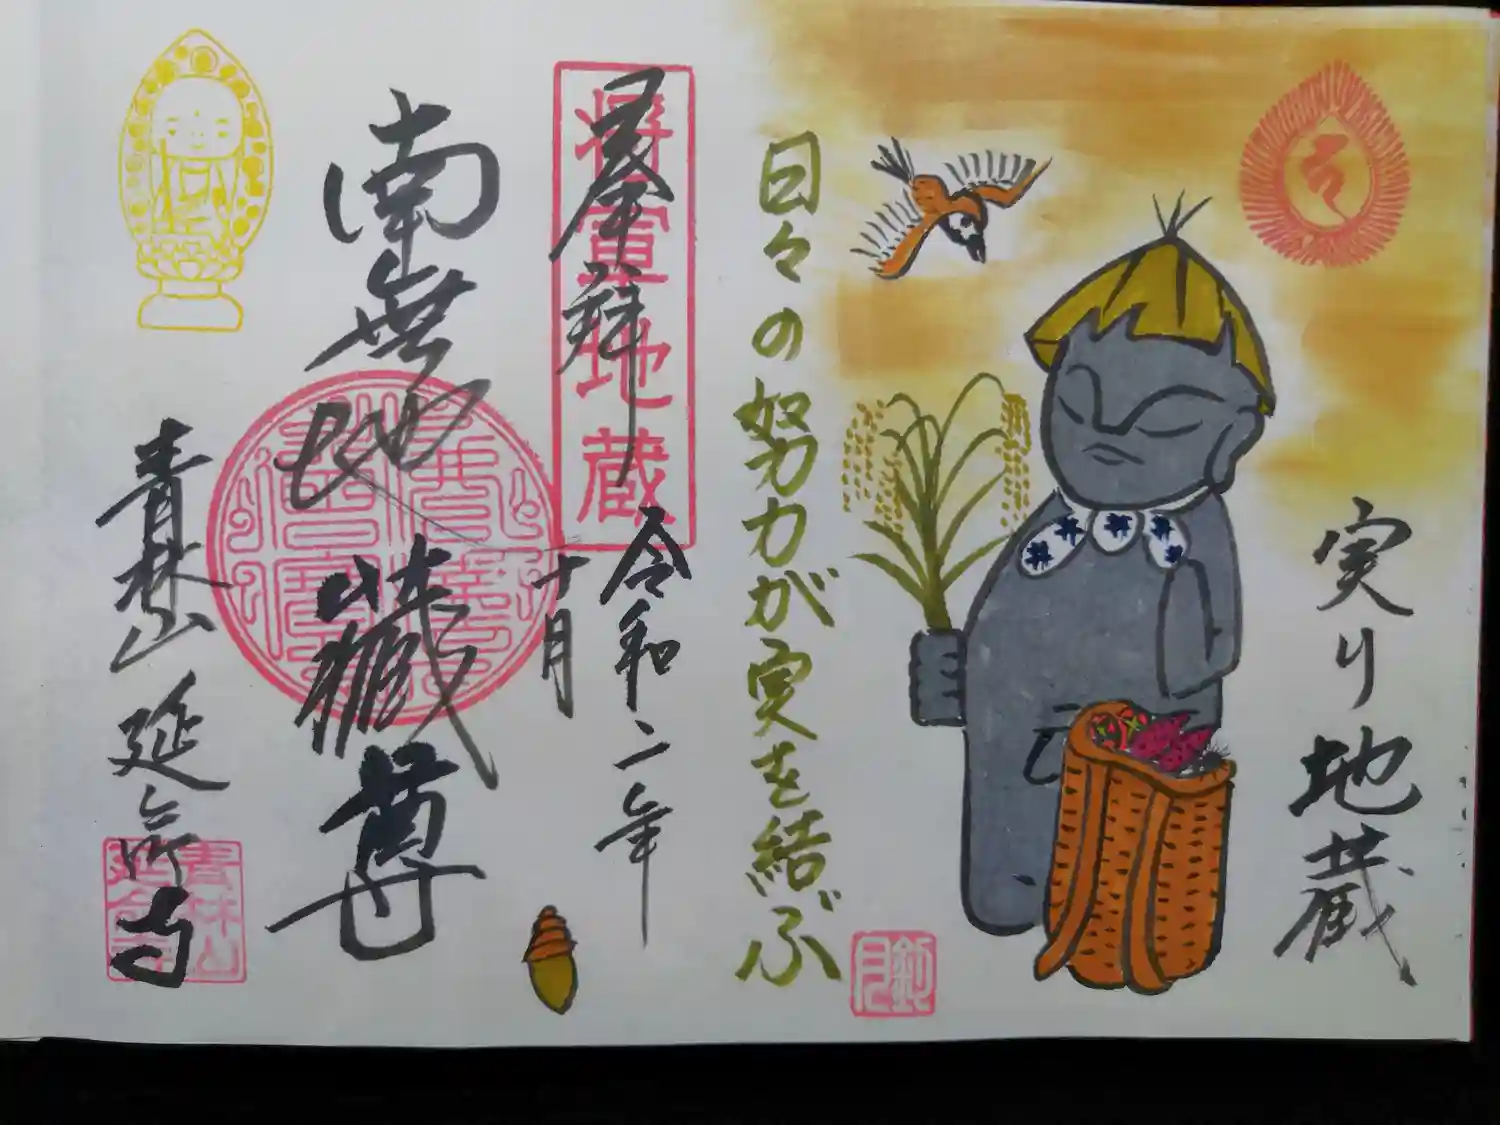 実り地蔵
日々の努力が実を結ぶ
奉拝
将軍地蔵
令和二年
十月
南無地蔵尊
青林山 延命寺
青林山
延命寺